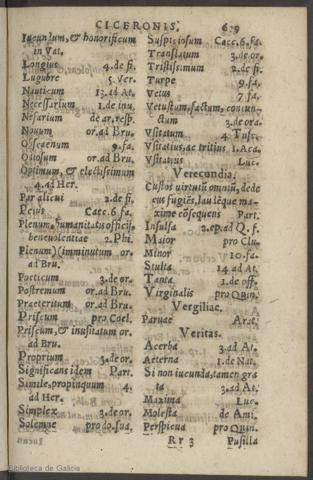 CICERONIS. 679
Iucundum, & honorificum
in Vat.
Longius 4. de fi.
Lugubre 5. Ver.
Nauticum 13. ad At.
Necessarium 1. de inu.
Nefarium de ar. resp.
Nouum or. ad Bru.
Obscaenum 9. fa.
Odiosum or. ad Bru.
Optimum, & electissimum
4. ad Her.
Par alicui 2. de fi.
Peius Caec. 6. fa.
Plenum humanitatis officij,
beneuolentiae 2. Phi.
Plenum) imminutum or.
ad Bru.
Poeticum 3. de or.
Postremum or. ad Bru.
Praeteritum or. ad Bru.
Priscum pro Coel.
Priscum, & inusitatum or.
ad Bru.
Proprium 3. de or.
Significans idem Part.
Simile, propinquum 4.
ad Her.
Simplex 3. de or.
Solemne pro do. sua.
Suspiciosum Caec. 6. fa.
Translatum 3. de or.
Tristissimum 2. de fi.
Turpe 9. fa.
Vetus 7. fa.
Vetustum, factum, coniun-
ctum 3. de ora.
Vsitatum 4. Tusc.
Vsitatius, ac tritius 1. Aca.
Vsitatius Luc.
Verecundia.
Custos virtutũ omniũ, dede
cus fugiẽs, laudẽque ma-
xime cõsequens Part.
Insulsa 2. ep. ad Q. f.
Maior pro Clu.
Minor 10. fa.
Stulta 14. ad At.
Tanta 1. de off.
Virginalis pro Quin.
Vergiliae.
Paruae Arat.
Veritas.
Acerba 3. ad At.
Aeterna 1. de Nat.
Si non iucunda, tamen gra
ta 3. ad At.
Maxima Luc.
Molesta de Ami.
Perspicua pro Quin.
Rr 3 Pusilla
Biblioteca de Galicia